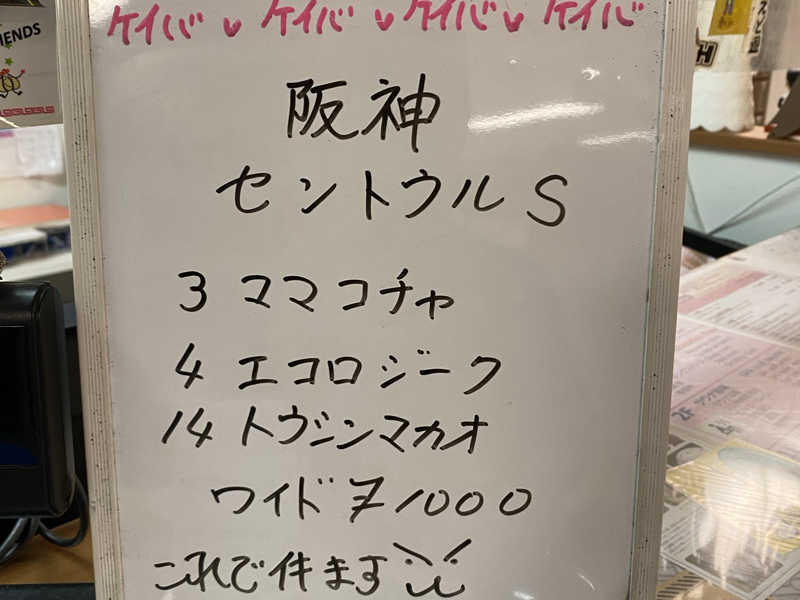 ケイバ♥ケイバ♥ケイバ♥ケイバ
ENDS
阪神
セントウルS
3 ママコチャ
4 エコロジーク
14 トウシンマカオ
ワイド 各1000
これで件ます